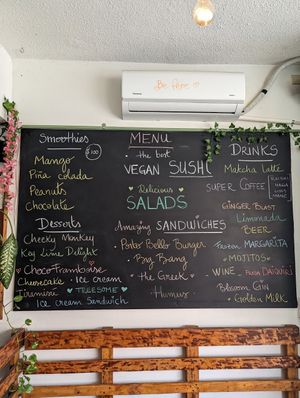 Be free
Smoothies
$100
Mango
Piña colada
Peanuts
Chocolate
Desserts
Cheeky Monkey
Key Lime Delight
Choco Framboise
Cheesecake Ice cream
Tiramisú TREESOME
Ice cream Sandwich
MENU
the best
VEGAN SUSHI
Delicious
SALADS
Amazing SANDWICHES
Porto Bello Burger
Big Bang
the Greek
Humus
DRINKS
Matcha Latte
SUPER COFFEE
GINGER BLAST
Limonada
BEER
Frozen MARGARITA
MOJITOS
WINE DAIQUIRI
Blossom GIN
Golden Milk